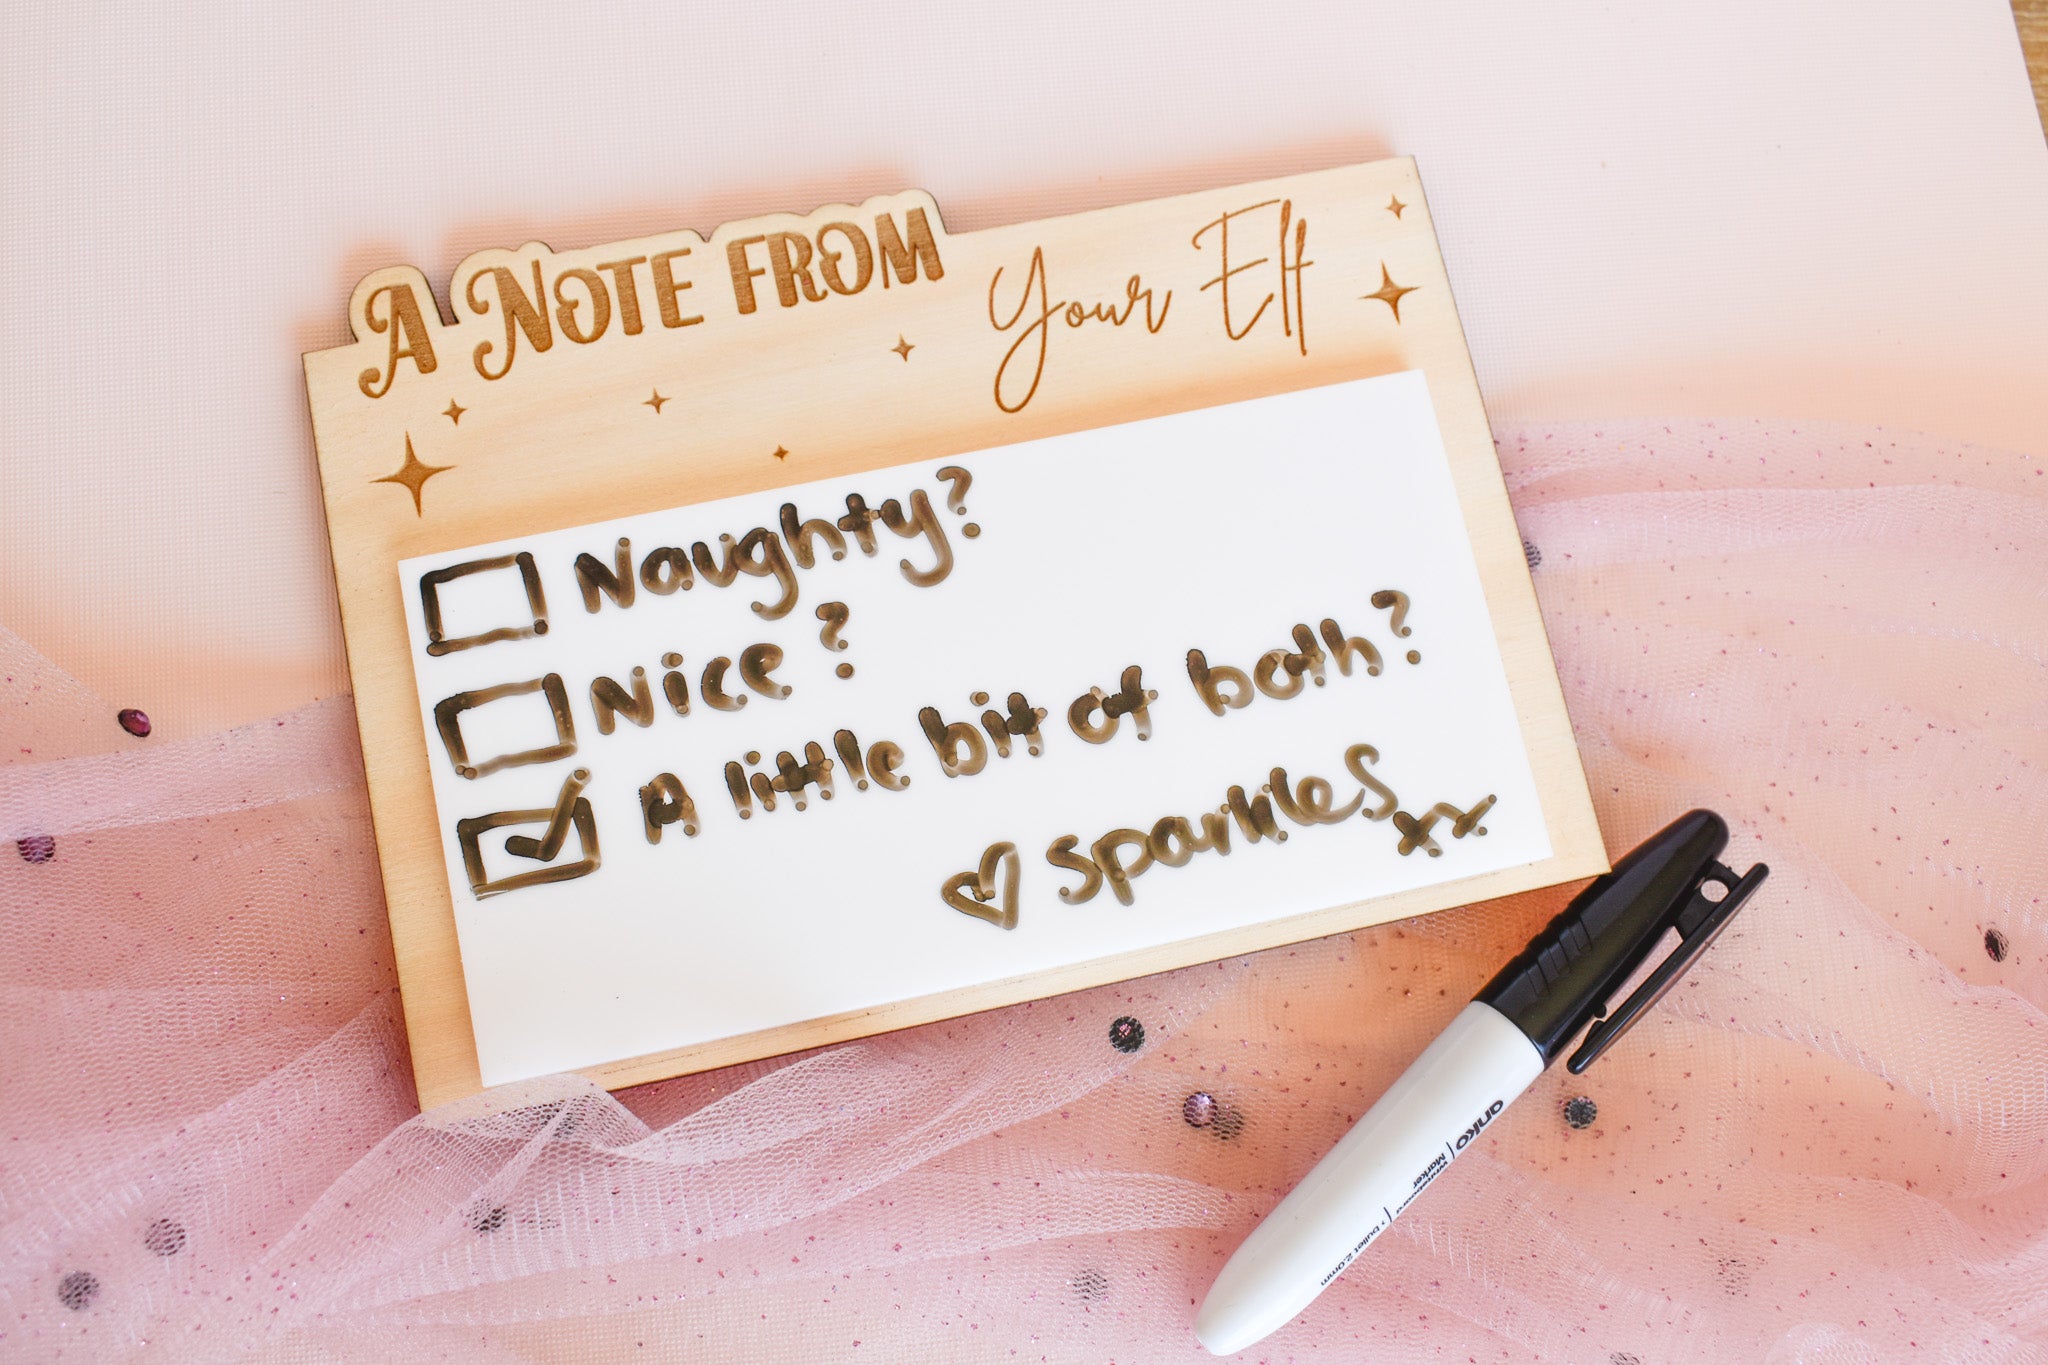 A NOTE FROM Your Elf
Naughty?
Nice?
A little bit of both?
♡ sparkles xx
anko
whiteboard Marker
bullet 2.0mm